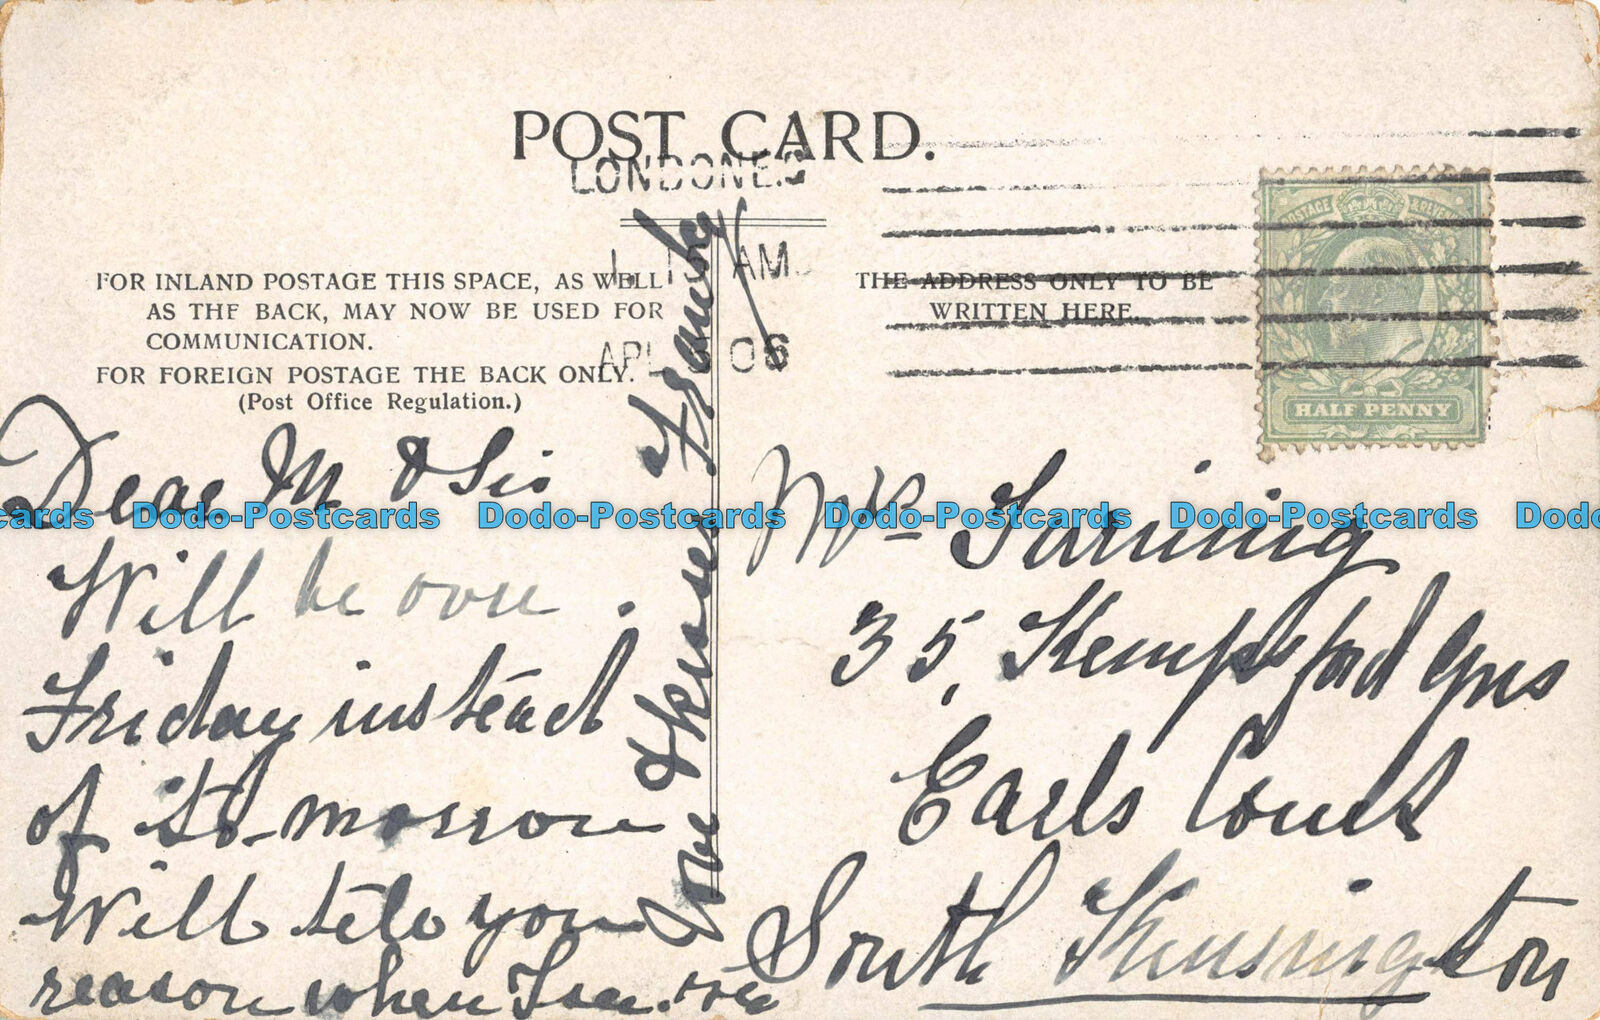 POST CARD.
LONDON E.C
1. 15 AM
APL 06
FOR INLAND POSTAGE THIS SPACE, AS WELL
AS THE BACK, MAY NOW BE USED FOR
COMMUNICATION.
FOR FOREIGN POSTAGE THE BACK ONLY.
(Post Office Regulation.)
THE ADDRESS ONLY TO BE
WRITTEN HERE.
POSTAGE & REVENUE
HALF PENNY
Dear M & Sis
Will be over
Friday instead
of to-morrow
Will tell you
reason when I see you
Love & kisses Franky
Mrs
35, Kempsford Gns
Earls Court
South Kensington
Dodo-Postcards Dodo-Postcards Dodo-Postcards Dodo-Postcards